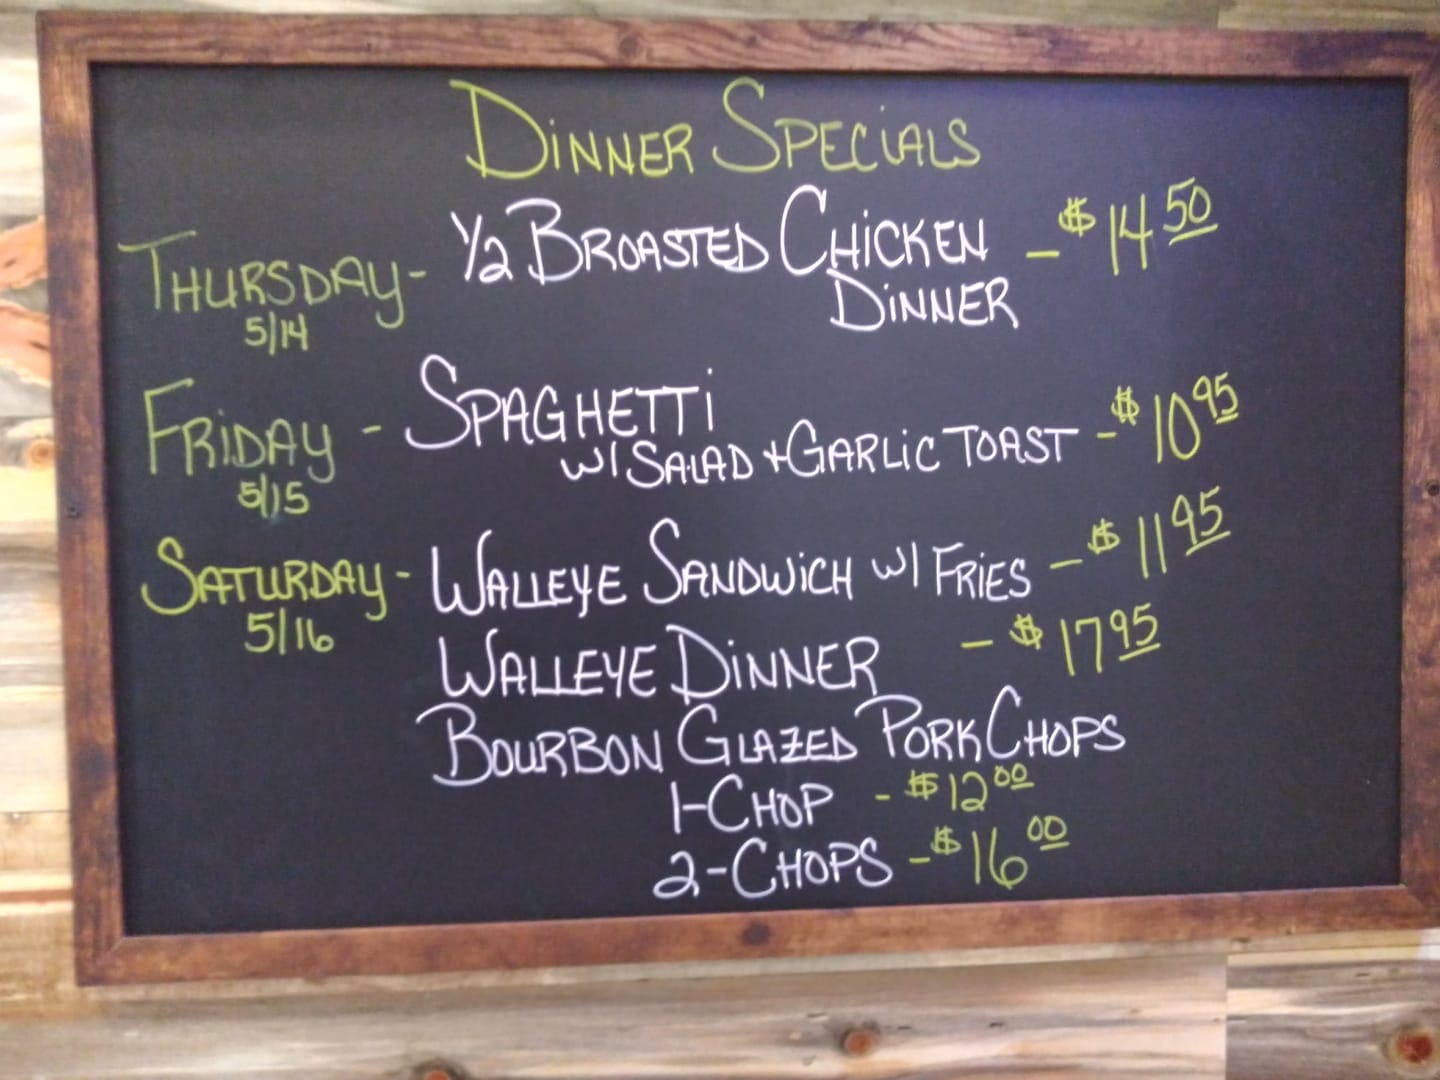 DINNER SPECIALS
THURSDAY - 1/2 BROASTED CHICKEN - $14 50
5/14 DINNER
FRIDAY - SPAGHETTI
5/15 W/ SALAD + GARLIC TOAST - $10 95
SATURDAY - WALLEYE SANDWICH W/ FRIES - $11 95
5/16
WALLEYE DINNER - $17 95
BOURBON GLAZED PORK CHOPS
1-CHOP - $12 00
2-CHOPS - $16 00